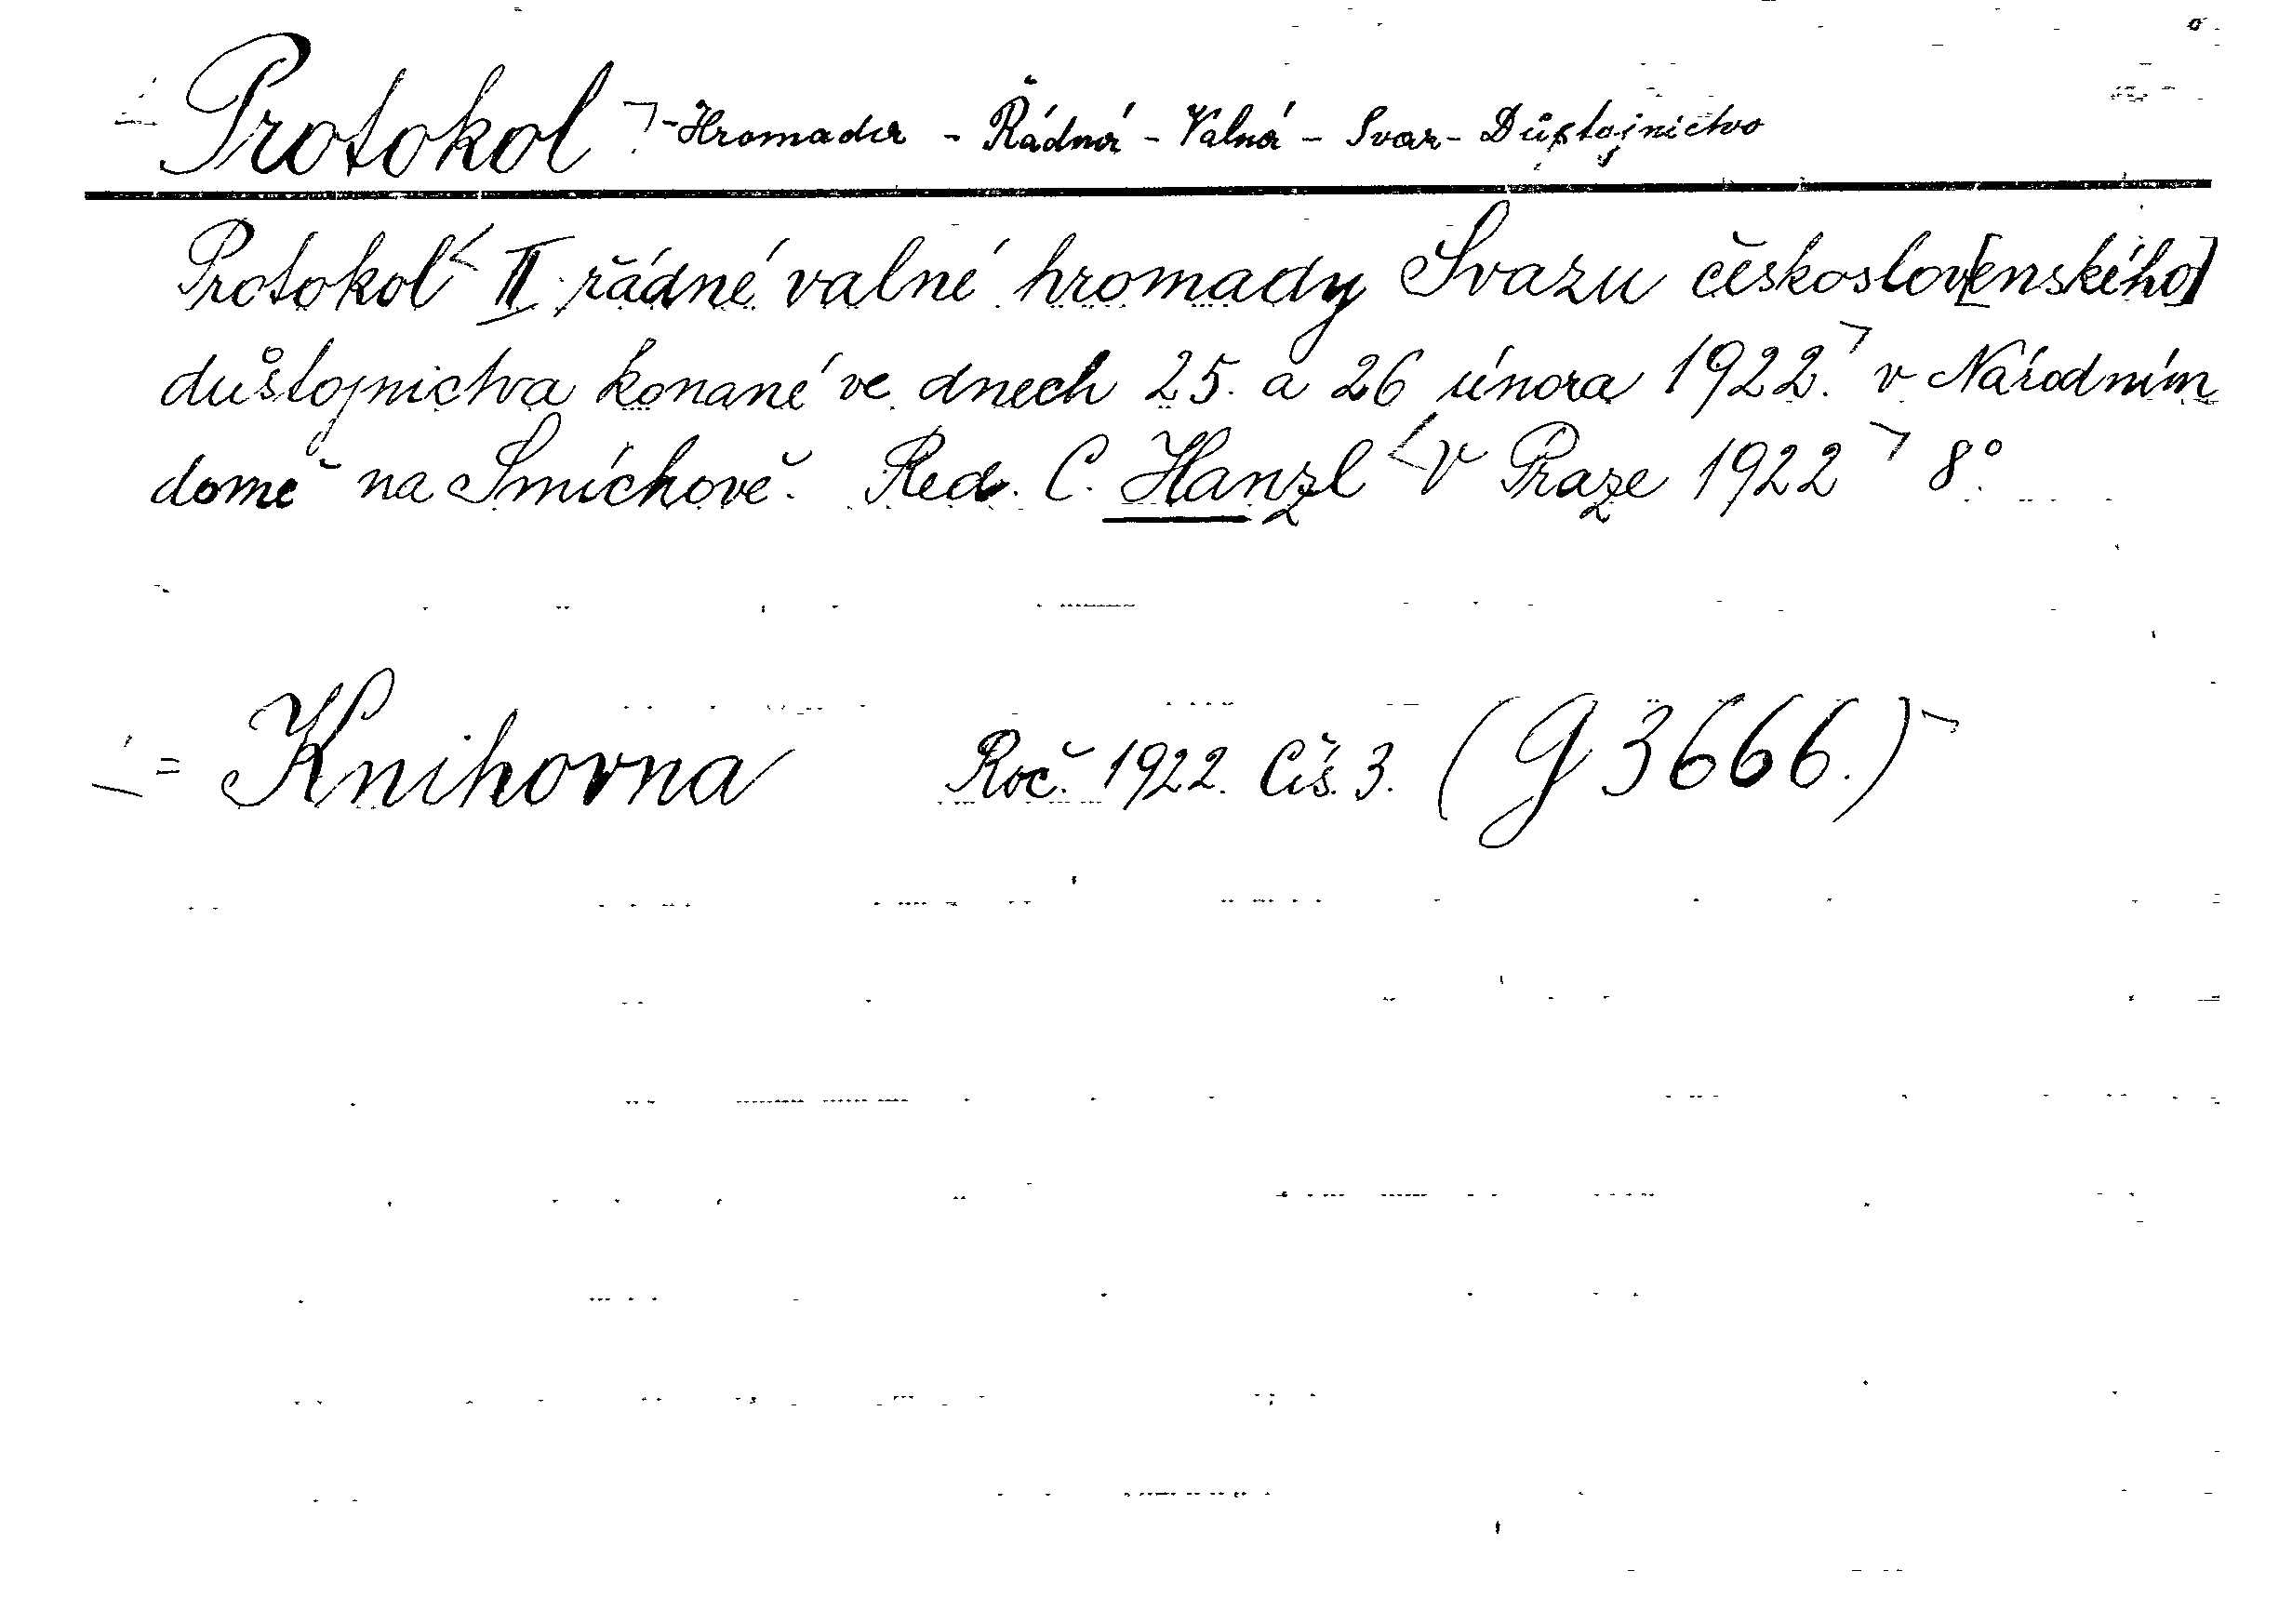 Protokol - Hromada - Řádná - Valná - Svaz - Důstojnictvo
Protokol II. řádné valné hromady Svazu českoslov[enského]
důstojnictva konané ve dnech 25. a 26 února 1922. v Národním
domě na Smíchově. Red. C. Hanzl V Praze 1922 8°.
= Knihovna Roč. 1922. Čís. 3. (G 3666.)